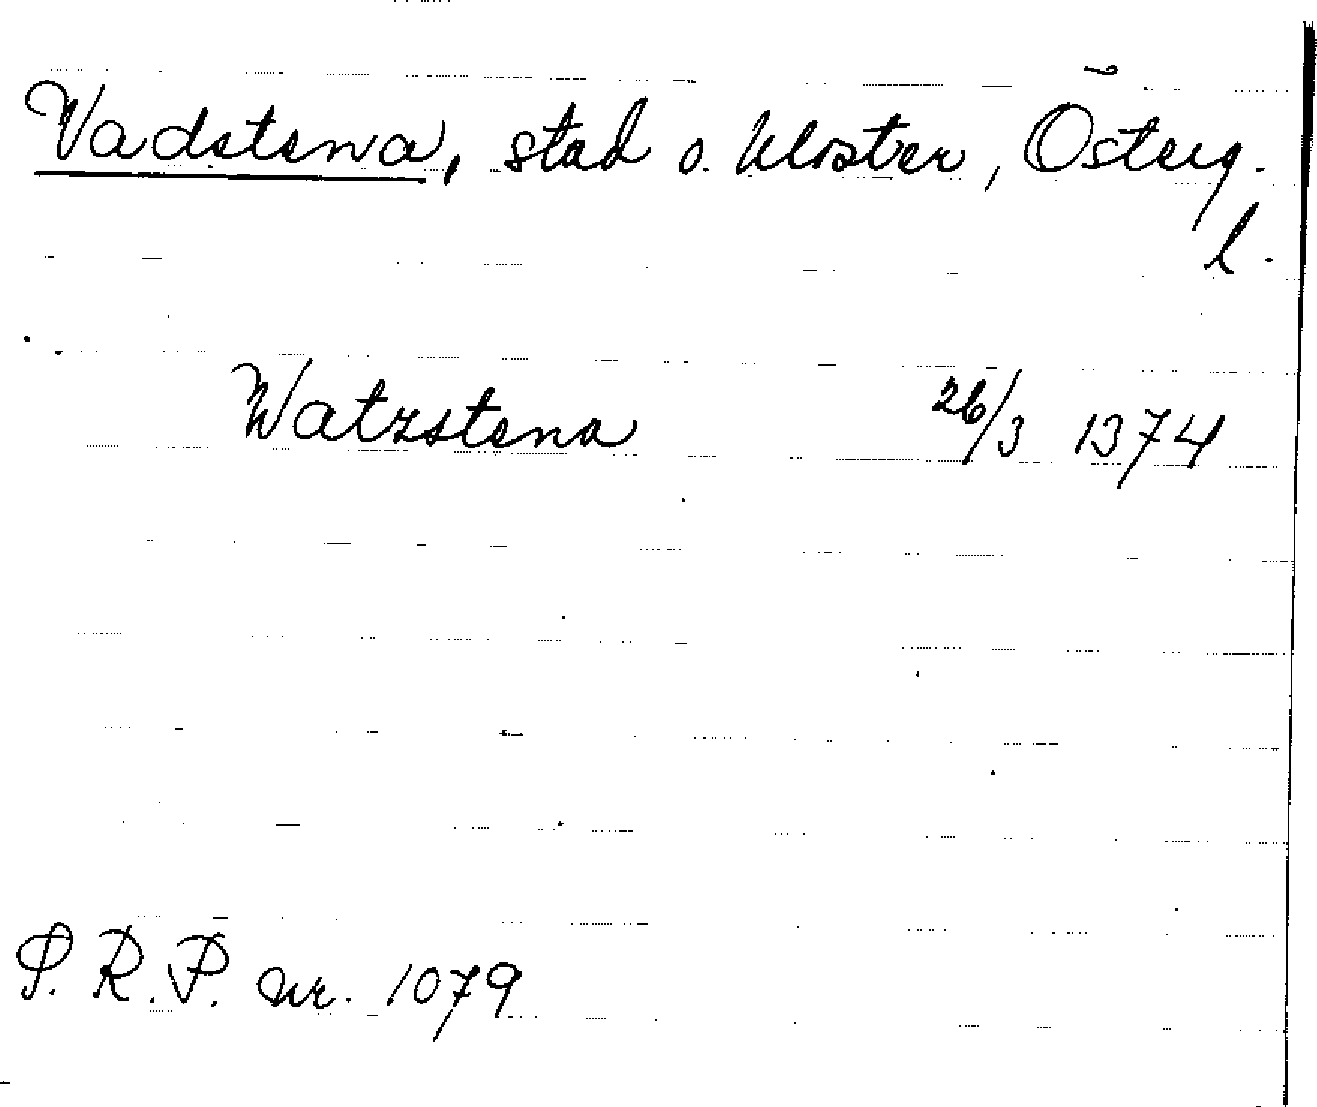 Vadstena, stad o. kloster, Österg.
l.
Watzstena 26/3 1374
P. R. P. nr. 1079